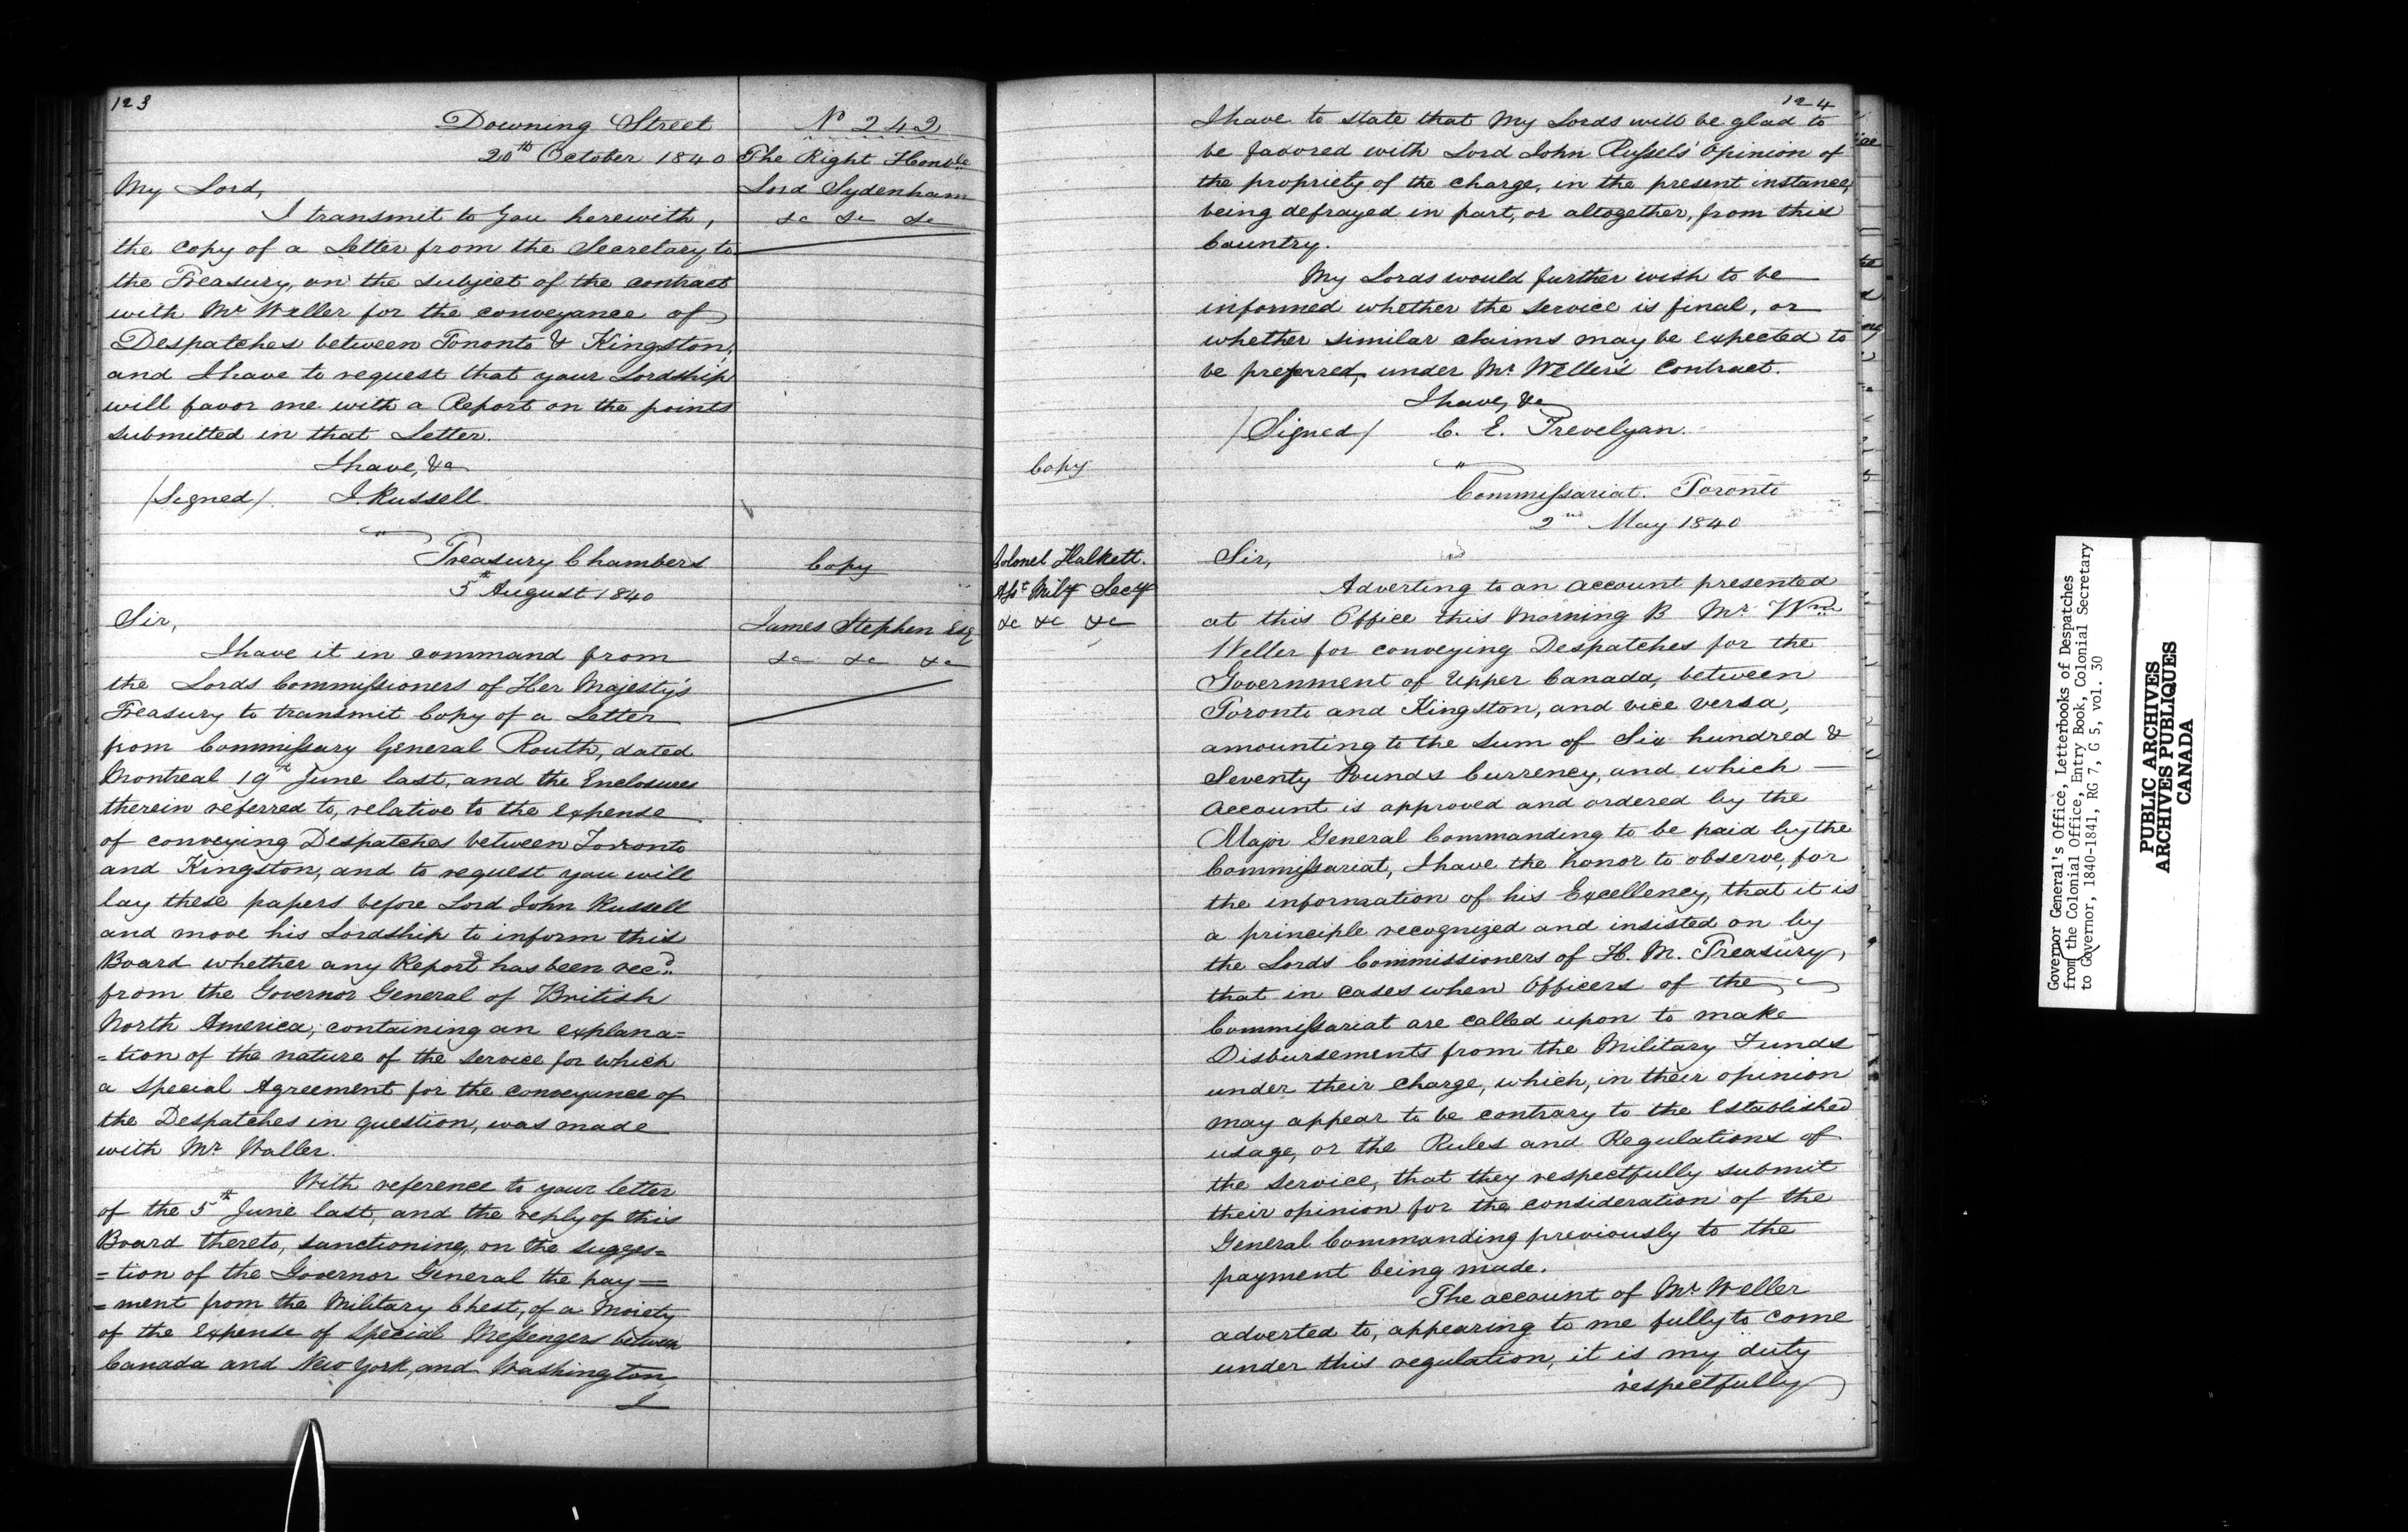 123
Downing Street
20th October 1840
No 242
The Right Honble
Lord Sydenham
&c &c &c
My Lord,
I transmit to You herewith,
the copy of a Letter from the Secretary to
the Treasury, on the subject of the contract
with Mr Waller for the conveyance of
Despatches between Toronto & Kingston,
and I have to request that your Lordship
will favor me with a Report on the points
submitted in that Letter.
I have, &c
/Signed/ J. Russell
Treasury Chambers
5th August 1840
Copy
James Stephen Esq
&c &c &c
Sir,
I have it in command from
the Lords Commissioners of Her Majesty's
Treasury to transmit Copy of a Letter
from Commissary General Routh, dated
Montreal 19th June last, and the Enclosures
therein referred to, relative to the expense
of conveying Despatches between Toronto
and Kingston, and to request you will
lay these papers before Lord John Russell
and move his Lordship to inform this
Board whether any Report has been recd
from the Governor General of British
North America, containing an explana=
=tion of the nature of the service for which
a special Agreement for the conveyance of
the Despatches in question, was made
with Mr Waller.
With reference to your letter
of the 5th June last, and the reply of this
Board thereto, sanctioning, on the sugges=
=tion of the Governor General the pay=
=ment from the Military Chest, of a Moiety
of the expense of special Messengers between
Canada and New York, and Washington,
I
124
I have to state that My Lords will be glad to
be favored with Lord John Russels' Opinion of
the propriety of the charge, in the present instance,
being defrayed in part, or altogether, from this
Country.
My Lords would further wish to be
informed whether the service is final, or
whether similar claims may be expected to
be preferred, under Mr Weller's Contract.
I have, &c
/Signed/ C. E. Trevelyan.
Copy
Commissariat. Toronto
2nd May 1840
Colonel Halkett.
Asst Mily Secy
&c &c &c
Sir,
Adverting to an account presented
at this Office this Morning B Mr Wm
Weller for conveying Despatches for the
Government of Upper Canada, between
Toronto and Kingston, and vice versa,
amounting to the sum of Six hundred &
Seventy Pounds Currency, and which
account is approved and ordered by the
Major General Commanding to be paid by the
Commissariat, I have the honor to observe, for
the information of his Excellency, that it is
a principle recognized and insisted on by
the Lords Commissioners of H. M. Treasury,
that in cases when Officers of the
Commissariat are called upon to make
Disbursements from the Military Funds
under their charge, which, in their opinion
may appear to be contrary to the established
usage, or the Rules and Regulations of
the service, that they respectfully submit
their opinion for the consideration of the
General Commanding previously to the
payment being made.
The account of Mr Weller
adverted to, appearing to me fully to come
under this regulation, it is my duty
respectfully
Governor General's Office, Letterbooks of Despatches
from the Colonial Office, Entry Book, Colonial Secretary
to Governor, 1840-1841, RG 7, G 5, vol. 30
PUBLIC ARCHIVES
ARCHIVES PUBLIQUES
CANADA